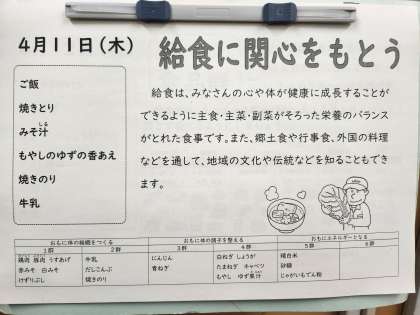 4月11日(木)
給食に関心をもとう
ご飯
焼きとり
みそ汁
もやしのゆずの香あえ
焼きのり
牛乳
給食は、みなさんの心や体が健康に成長することが
できるように主食・主菜・副菜がそろった栄養のバランス
がとれた食事です。また、郷土食や行事食、外国の料理
などを通して、地域の文化や伝統などを知ることもでき
ます。
おもに体の組織をつくる
おもに体の調子を整える
おもにエネルギーとなる
1群 2群 3群 4群 5群 6群
鶏肉 豚肉 うすあげ 牛乳 にんじん 白ねぎ しょうが 精白米
赤みそ 白みそ だしこんぶ 青ねぎ たまねぎ キャベツ 砂糖
けずりぶし 焼きのり もやし ゆず果汁 じゃがいもでん粉